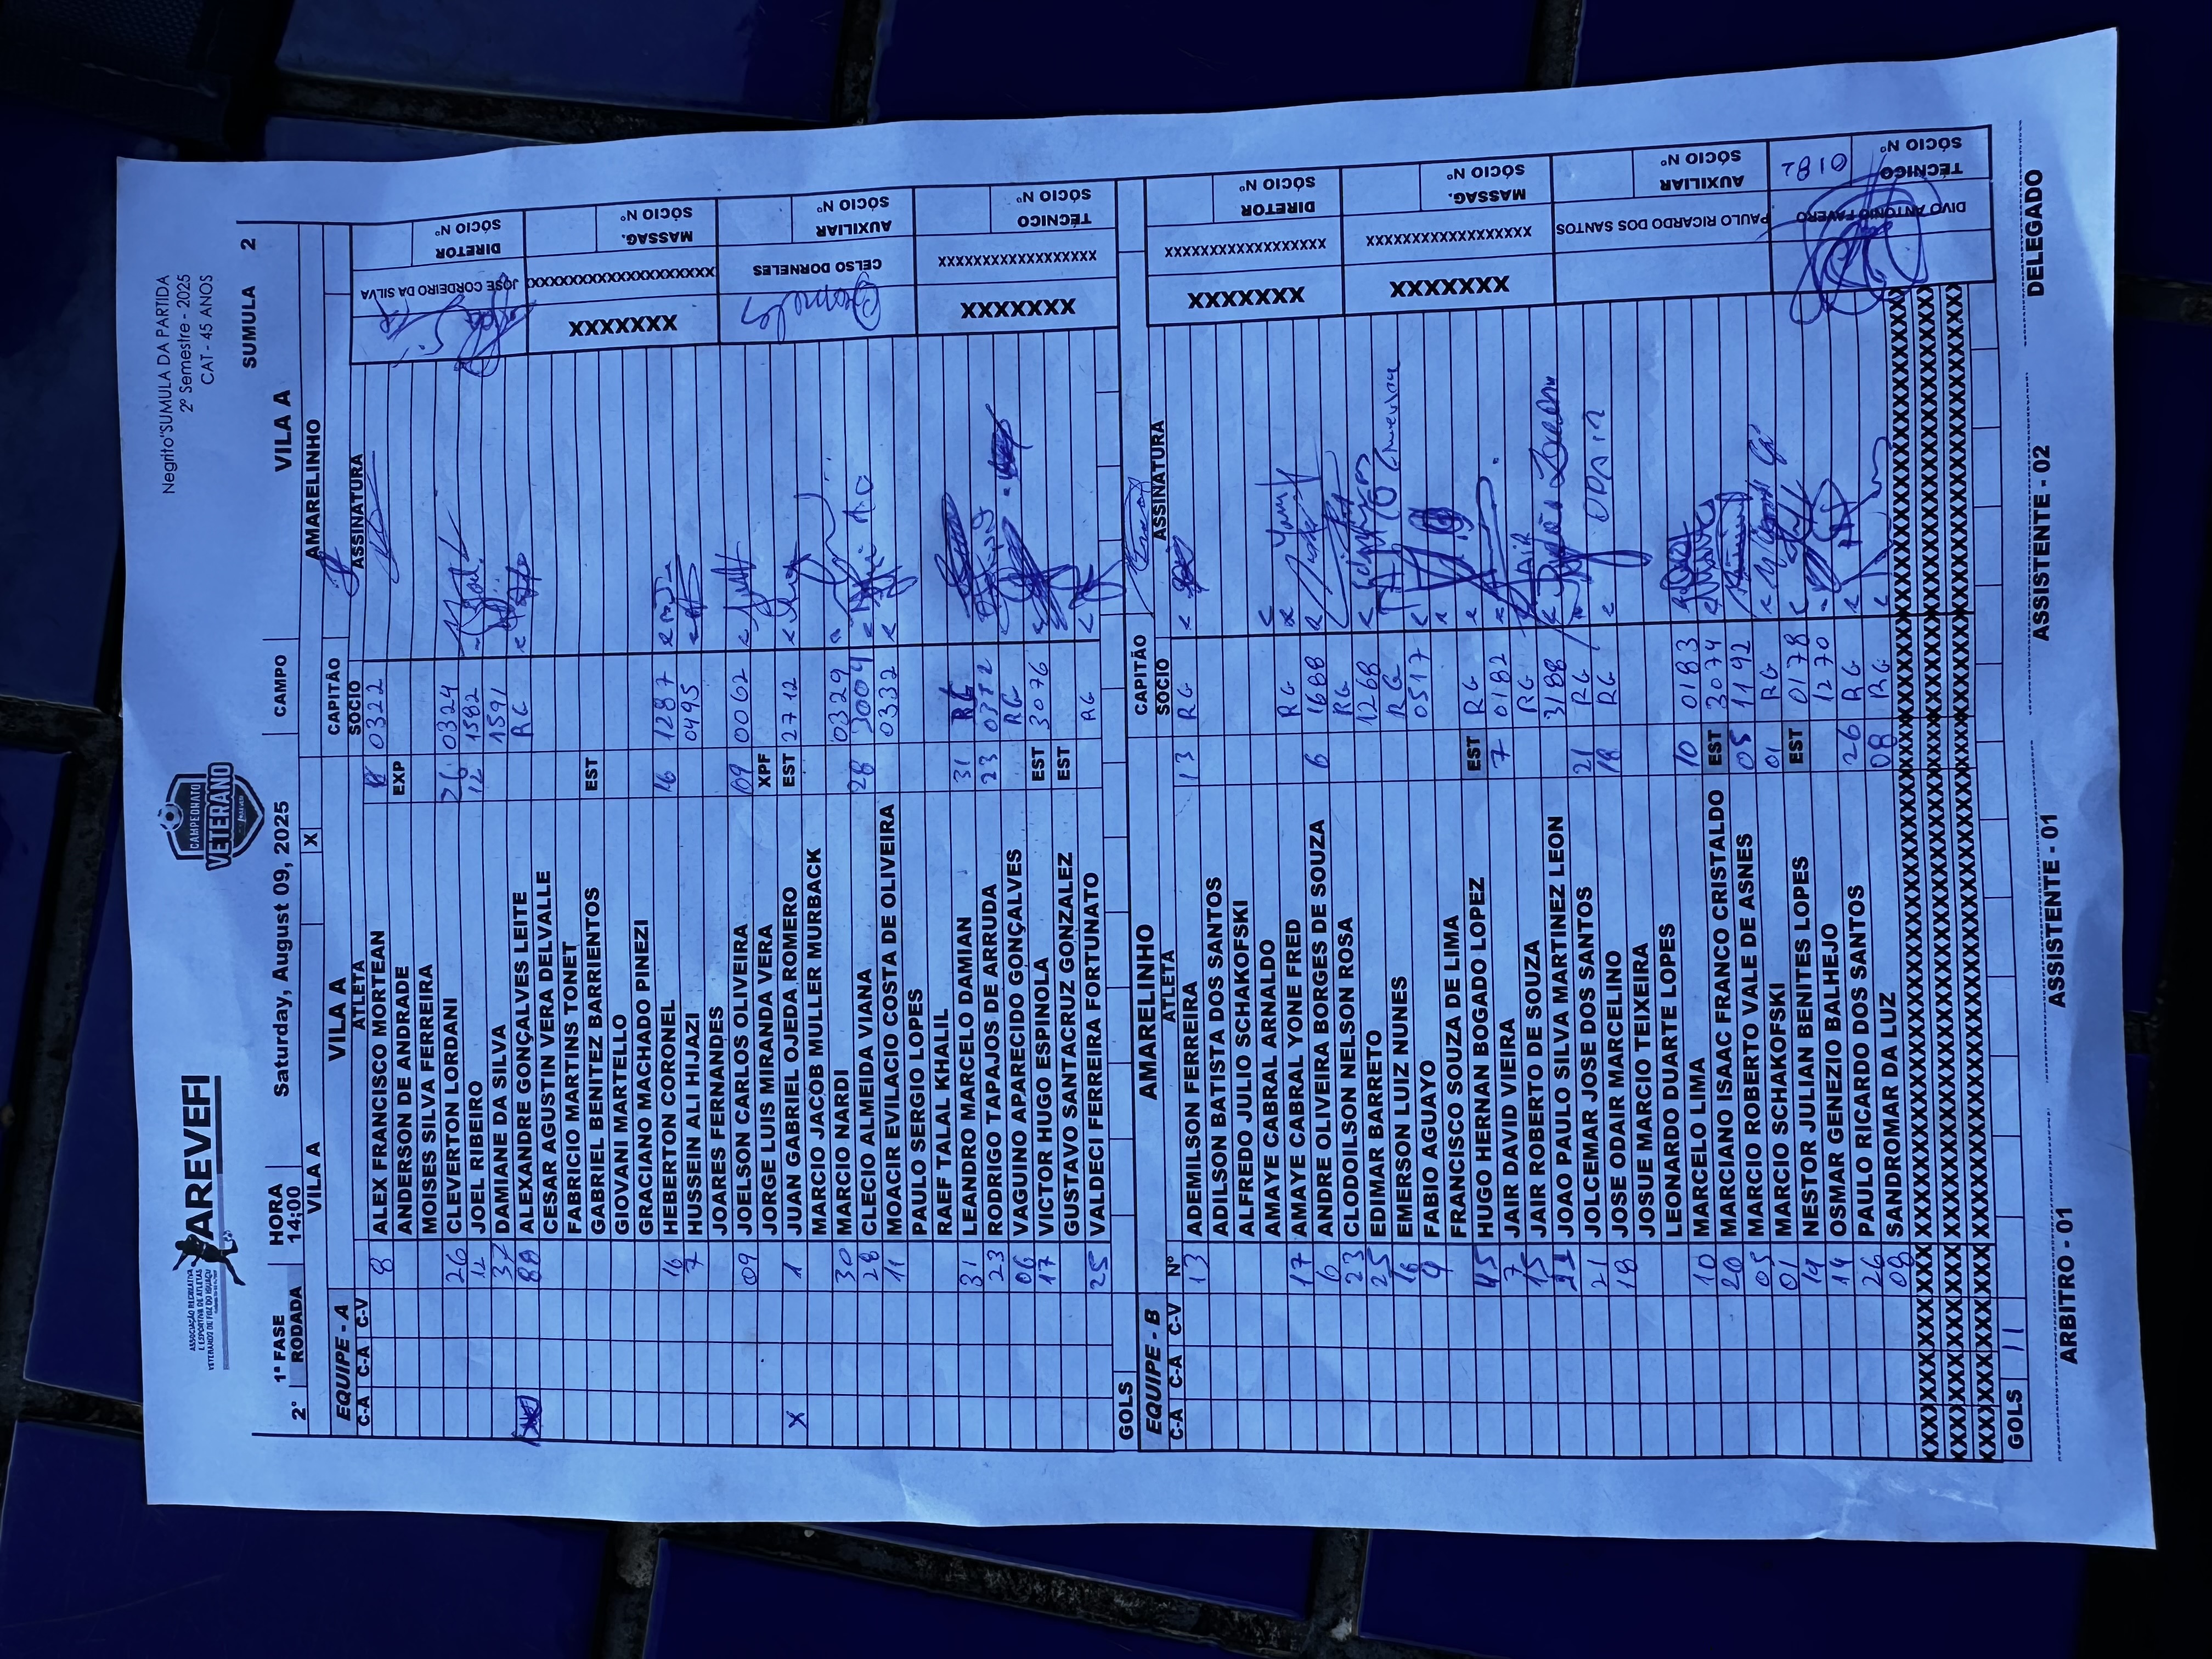 ASSOCIAÇÃO RECREATIVA
E ESPORTIVA DE ATLETAS
VETERANOS DE FOZ DO IGUAÇU
AREVEFI
CAMPEONATO
VETERANO
Negrito"SUMULA DA PARTIDA
2º Semestre - 2025
CAT - 45 ANOS
1ª FASE HORA Saturday, August 09, 2025 CAMPO VILA A SUMULA 2
2ª RODADA 14:00
VILA A X AMARELINHO
EQUIPE - A VILA A CAPITÃO
C-A C-A C-V ATLETA SÓCIO ASSINATURA
8 ALEX FRANCISCO MORTEAN 0322
ANDERSON DE ANDRADE EXP
MOISES SILVA FERREIRA
26 CLEVERTON LORDANI 26 0324
12 JOEL RIBEIRO 12 1582
37 DAMIANE DA SILVA 1591
ALEXANDRE GONÇALVES LEITE RG
CESAR AGUSTIN VERA DELVALLE
FABRICIO MARTINS TONET
GABRIEL BENITEZ BARRIENTOS EST
GIOVANI MARTELLO
GRACIANO MACHADO PINEZI
16 HEBERTON CORONEL 16 1287
7 HUSSEIN ALI HIJAZI 0495
JOARES FERNANDES
09 JOELSON CARLOS OLIVEIRA 09 0062
JORGE LUIS MIRANDA VERA XPF
X 1 JUAN GABRIEL OJEDA ROMERO EST 2712
MARCIO JACOB MULLER MURBACK
30 MARCIO NARDI 0329
28 CLECIO ALMEIDA VIANA 28 3004
11 MOACIR EVILACIO COSTA DE OLIVEIRA 0332
PAULO SERGIO LOPES
RAEF TALAL KHALIL
31 LEANDRO MARCELO DAMIAN 31 RG
23 RODRIGO TAPAJOS DE ARRUDA 23
06 VAGUINO APARECIDO GONÇALVES RG
17 VICTOR HUGO ESPINOLA EST 3076
GUSTAVO SANTACRUZ GONZALEZ EST
25 VALDECI FERREIRA FORTUNATO RG
GOLS
JOSE CORDEIRO DA SILVA
DIRETOR
SÓCIO Nº
XXXXXXX
XXXXXXXXXXXXXXXXXXXXX
MASSAG.
SÓCIO Nº
CELSO DORNELES
AUXILIAR
SÓCIO Nº
XXXXXXX
XXXXXXXXXXXXXXXXXX
TÉCNICO
SÓCIO Nº
EQUIPE - B AMARELINHO CAPITÃO
C-A C-A C-V Nº ATLETA SÓCIO ASSINATURA
13 ADEMILSON FERREIRA 13 RG
ADILSON BATISTA DOS SANTOS
ALFREDO JULIO SCHAKOFSKI
AMAYE CABRAL ARNALDO
17 AMAYE CABRAL YONE FRED RG
6 ANDRE OLIVEIRA BORGES DE SOUZA 6 1688
23 CLODOILSON NELSON ROSA RG
25 EDIMAR BARRETO 1268
16 EMERSON LUIZ NUNES RG
9 FABIO AGUAYO 0517
FRANCISCO SOUZA DE LIMA
45 HUGO HERNAN BOGADO LOPEZ EST RG
7 JAIR DAVID VIEIRA 7 0182
15 JAIR ROBERTO DE SOUZA RG
JOAO PAULO SILVA MARTINEZ LEON 3188
21 JOLCEMAR JOSE DOS SANTOS 21 RG
18 JOSE ODAIR MARCELINO 18 RG ODAIR
JOSUE MARCIO TEIXEIRA
LEONARDO DUARTE LOPES
10 MARCELO LIMA 10 0183
20 MARCIANO ISAAC FRANCO CRISTALDO EST 3074
05 MARCIO ROBERTO VALE DE ASNES 05 1192
01 MARCIO SCHAKOFSKI 01 RG
19 NESTOR JULIAN BENITES LOPES EST 0178
14 OSMAR GENEZIO BALHEJO 1270
26 PAULO RICARDO DOS SANTOS 26 RG
08 SANDROMAR DA LUZ 08 RG
GOLS 11
XXXXXXX
XXXXXXXXXXXXXXXXXX
DIRETOR
SÓCIO Nº
XXXXXXX
XXXXXXXXXXXXXXXXXX
MASSAG.
SÓCIO Nº
PAULO RICARDO DOS SANTOS
AUXILIAR
SÓCIO Nº
DIVO ANTONIO FAVERO
TÉCNICO 0182
SÓCIO Nº
ARBITRO - 01 ASSISTENTE - 01 ASSISTENTE - 02 DELEGADO